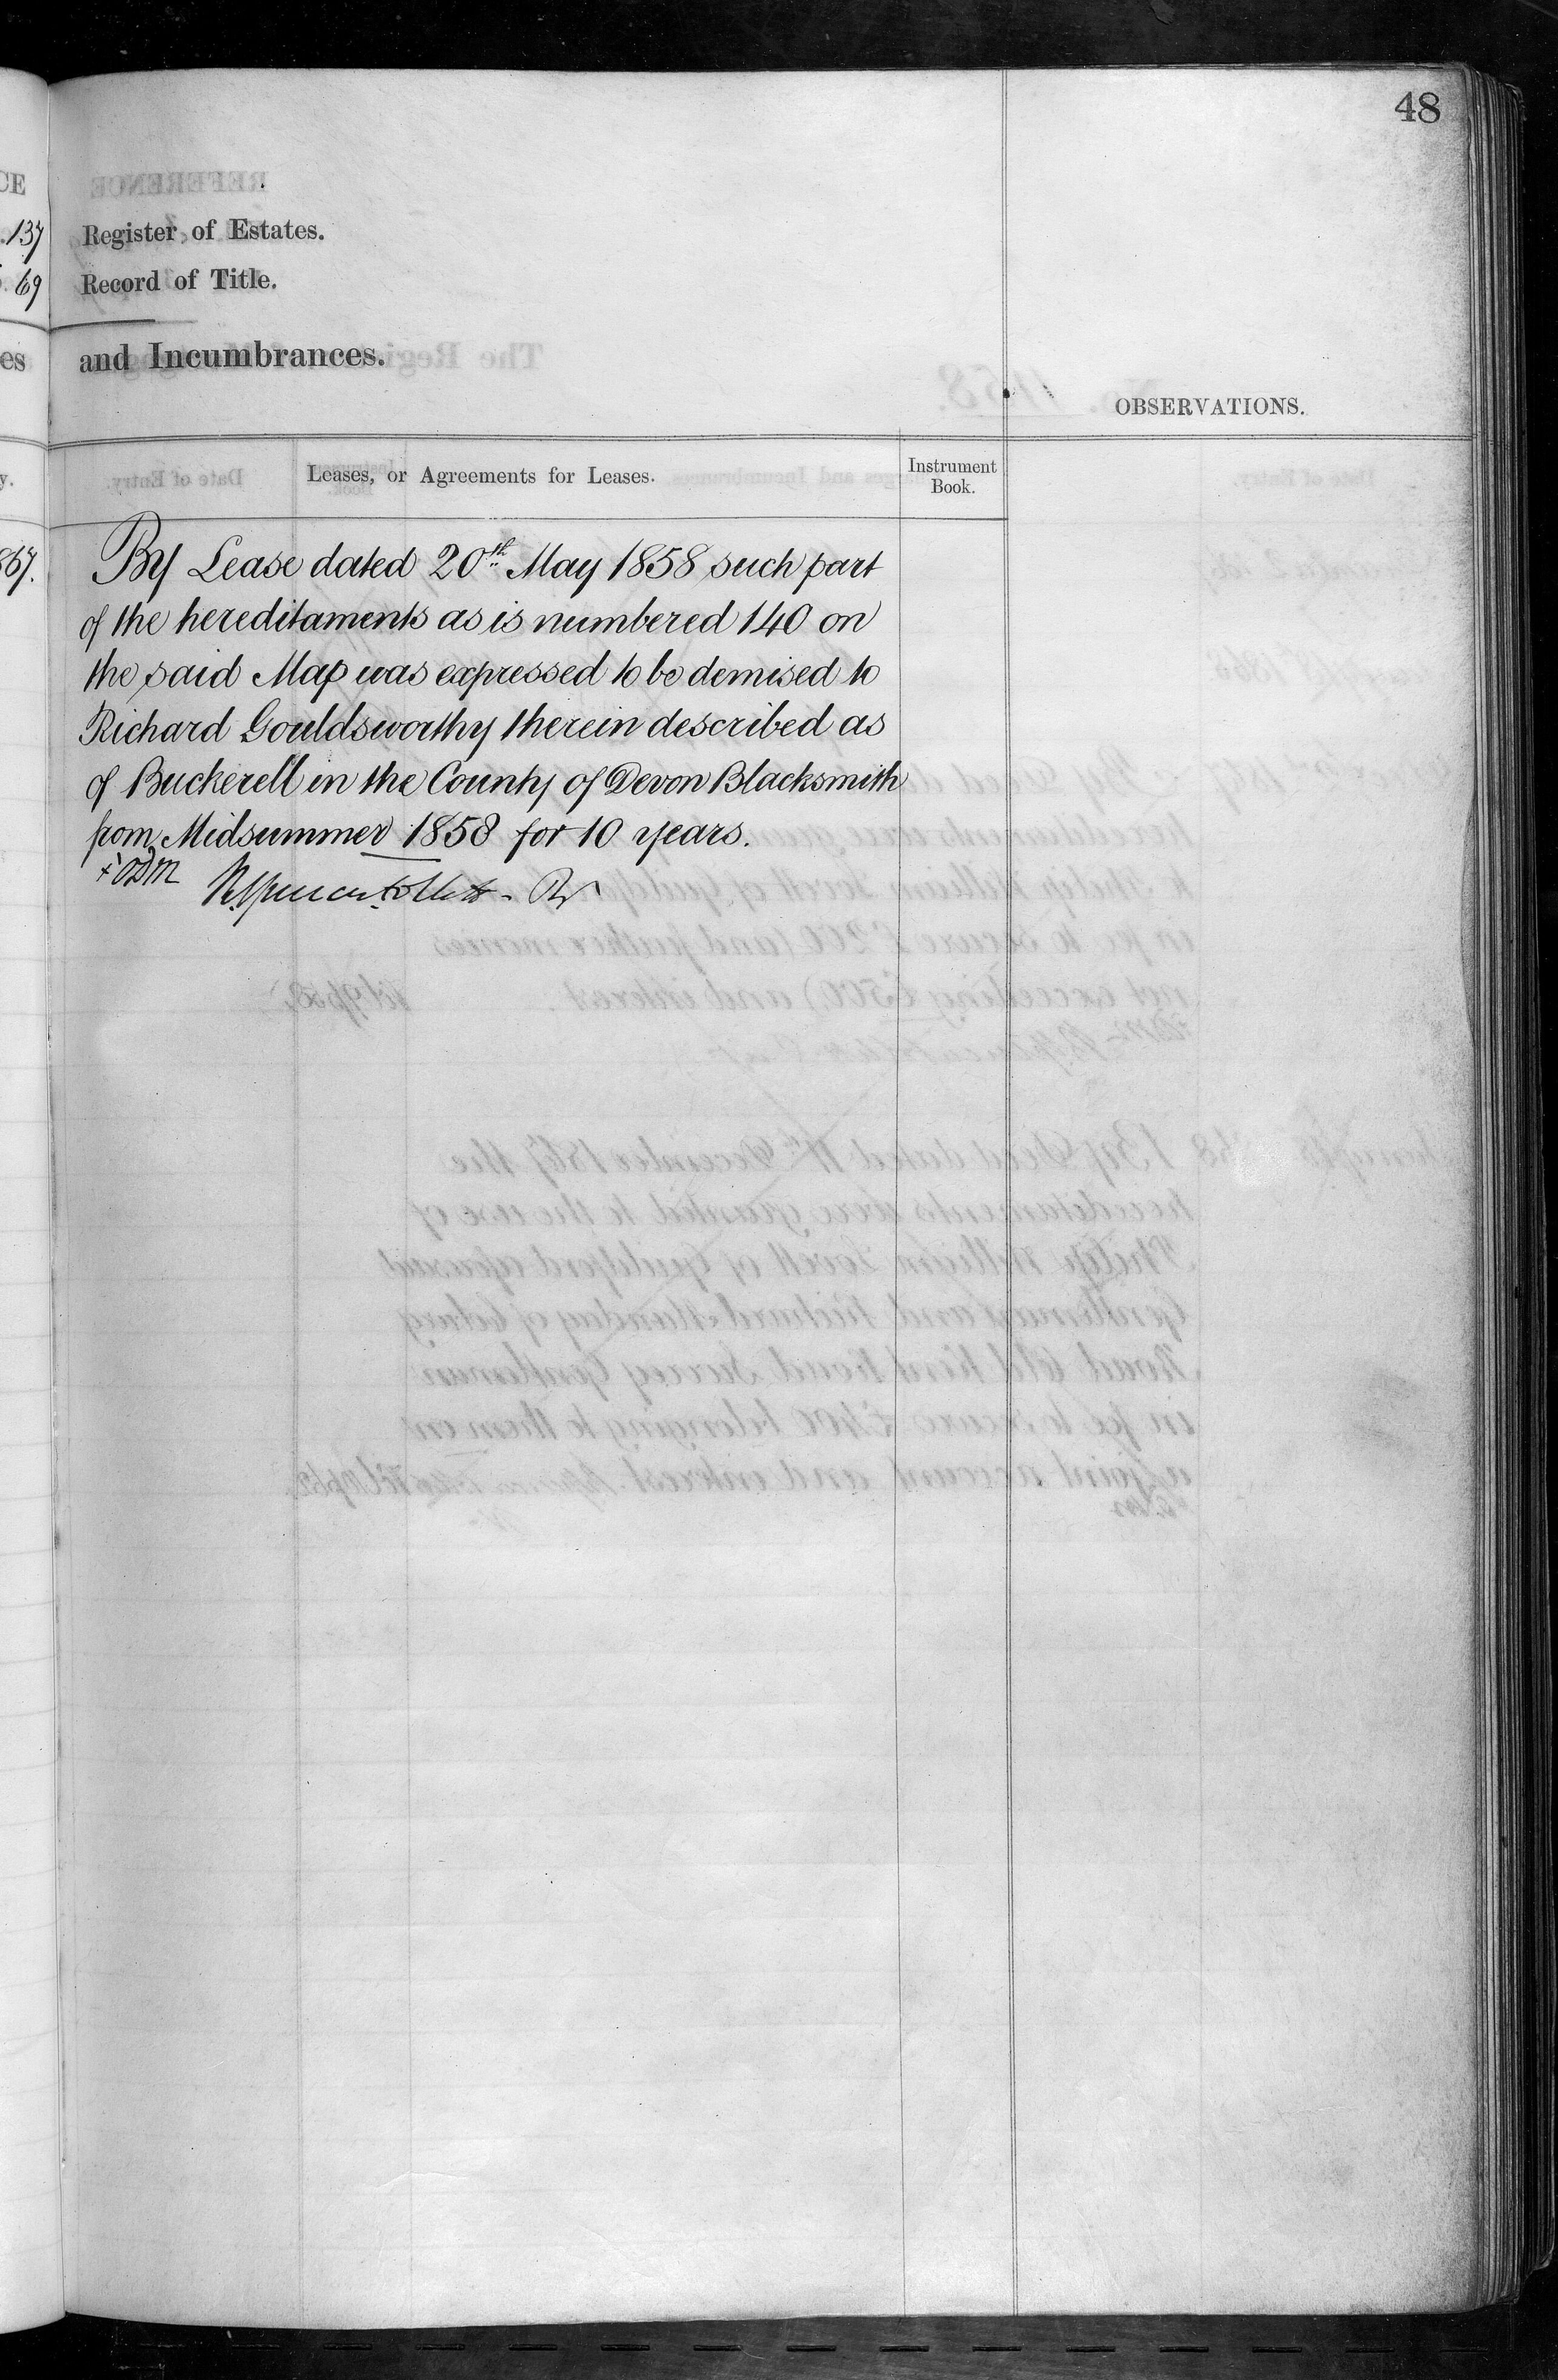 48
CE
137
Register of Estates.
69
Record of Title.
es
and Incumbrances.
OBSERVATIONS.
y.
Leases, or Agreements for Leases.
Instrument
Book.
867.
By Lease dated 20th May 1858 such part
of the hereditaments as is numbered 140 on
the said Map was expressed to be demised to
Richard Gouldsworthy therein described as
of Buckerell in the County of Devon Blacksmith
from Midsummer 1858 for 10 years.